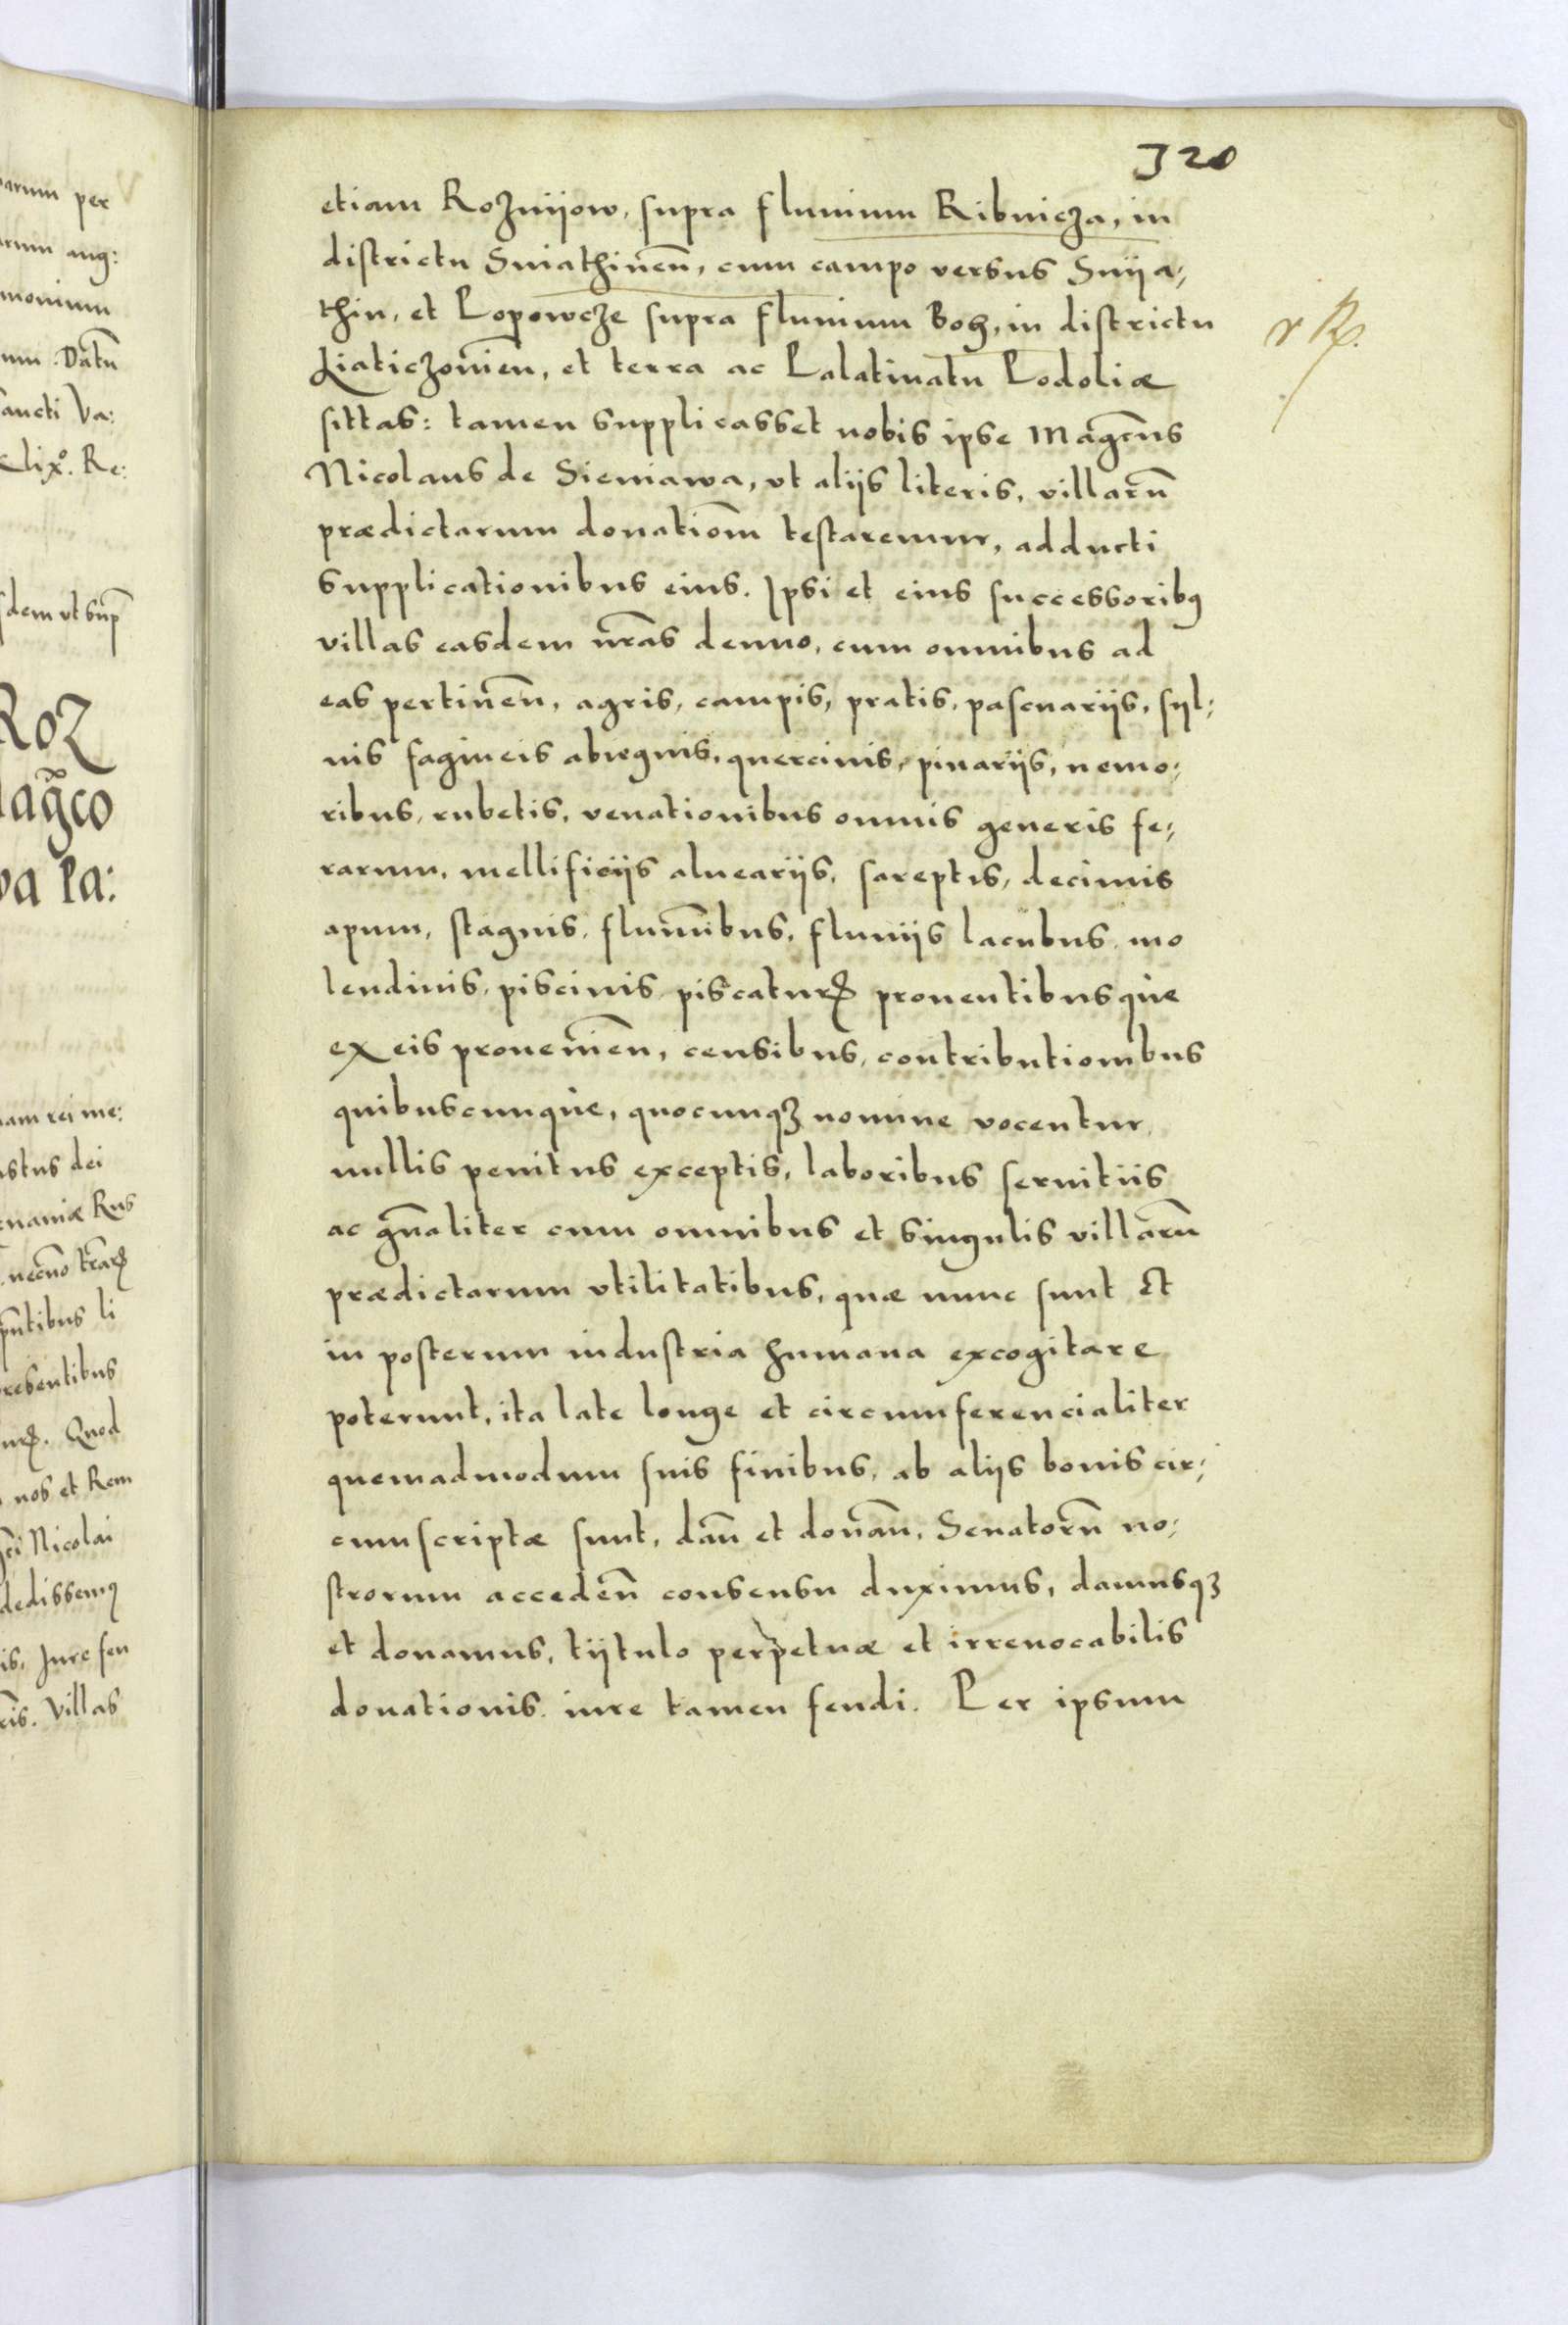 320
etiam Rozniiow, supra fluuium Ribnicza, in
districtu Sniathineñ, cum campo versus Sniia;
thin, et Popowcze supra fluuium Boh, in districtu
Liaticzouieñ, et terra ac Palatinatu Podoliæ
r R.
sittas: tamen supplicasset nobis ipse Magc̃us
Nicolaus de Sieniawa, vt aliis literis, villarũ
prædictarum donatiom̃ testaremur, adducti
supplicationibus eius. Ipsi et eius successoribꝰ
villas easdem nr̃as denuo, cum omnibus ad
eas pertineñ, agris, campis, pratis, pascuariis, syl;
uis fagineis abiegnis, quercinis, pinariis, nemo;
ribus, rubetis, venationibus omnis generis fe;
rarum, mellificiis alueariis, sareptis, decimis
apum, stagnis, flumĩbus, fluuiis lacubus, mo
lendinis, piscinis, piscaturꝭ prouentibusque
ex eis prouenieñ, censibus, contributionibus
quibuscunque, quocunqꝫ nomine vocentur,
nullis penitus exceptis, laboribus seruitiis
ac gñaliter cum omnibus et singulis villarũ
prædictarum vtilitatibus, quæ nunc sunt et
in posterum industria humana excogitare
poterunt, ita late longe et circumferencialiter
quemadmodum suis finibus, ab aliis bonis cir;
cumscriptæ sunt, dañ et donañ, Senatorũ no;
strorum accedeñ consensu duximus, damusqꝫ
et donamus, tytulo perpetuæ et irreuocabilis
donationis, iure tamen feudi. Per ipsum
arum per
rum aug:
monium
um. Datũ
ancti Va:
elix̊. Re:
dem vt sup̃
Roz
agc̃o
wa Pa:
am rei me:
stus dei
nauiæ Rus
necnõ tr̃arꝭ
pñtibus li
resentibus
urꝭ. Quod
nos et Rem
ci Nicolai
dedissemꝰ
is, Iure feu
ris. Villas